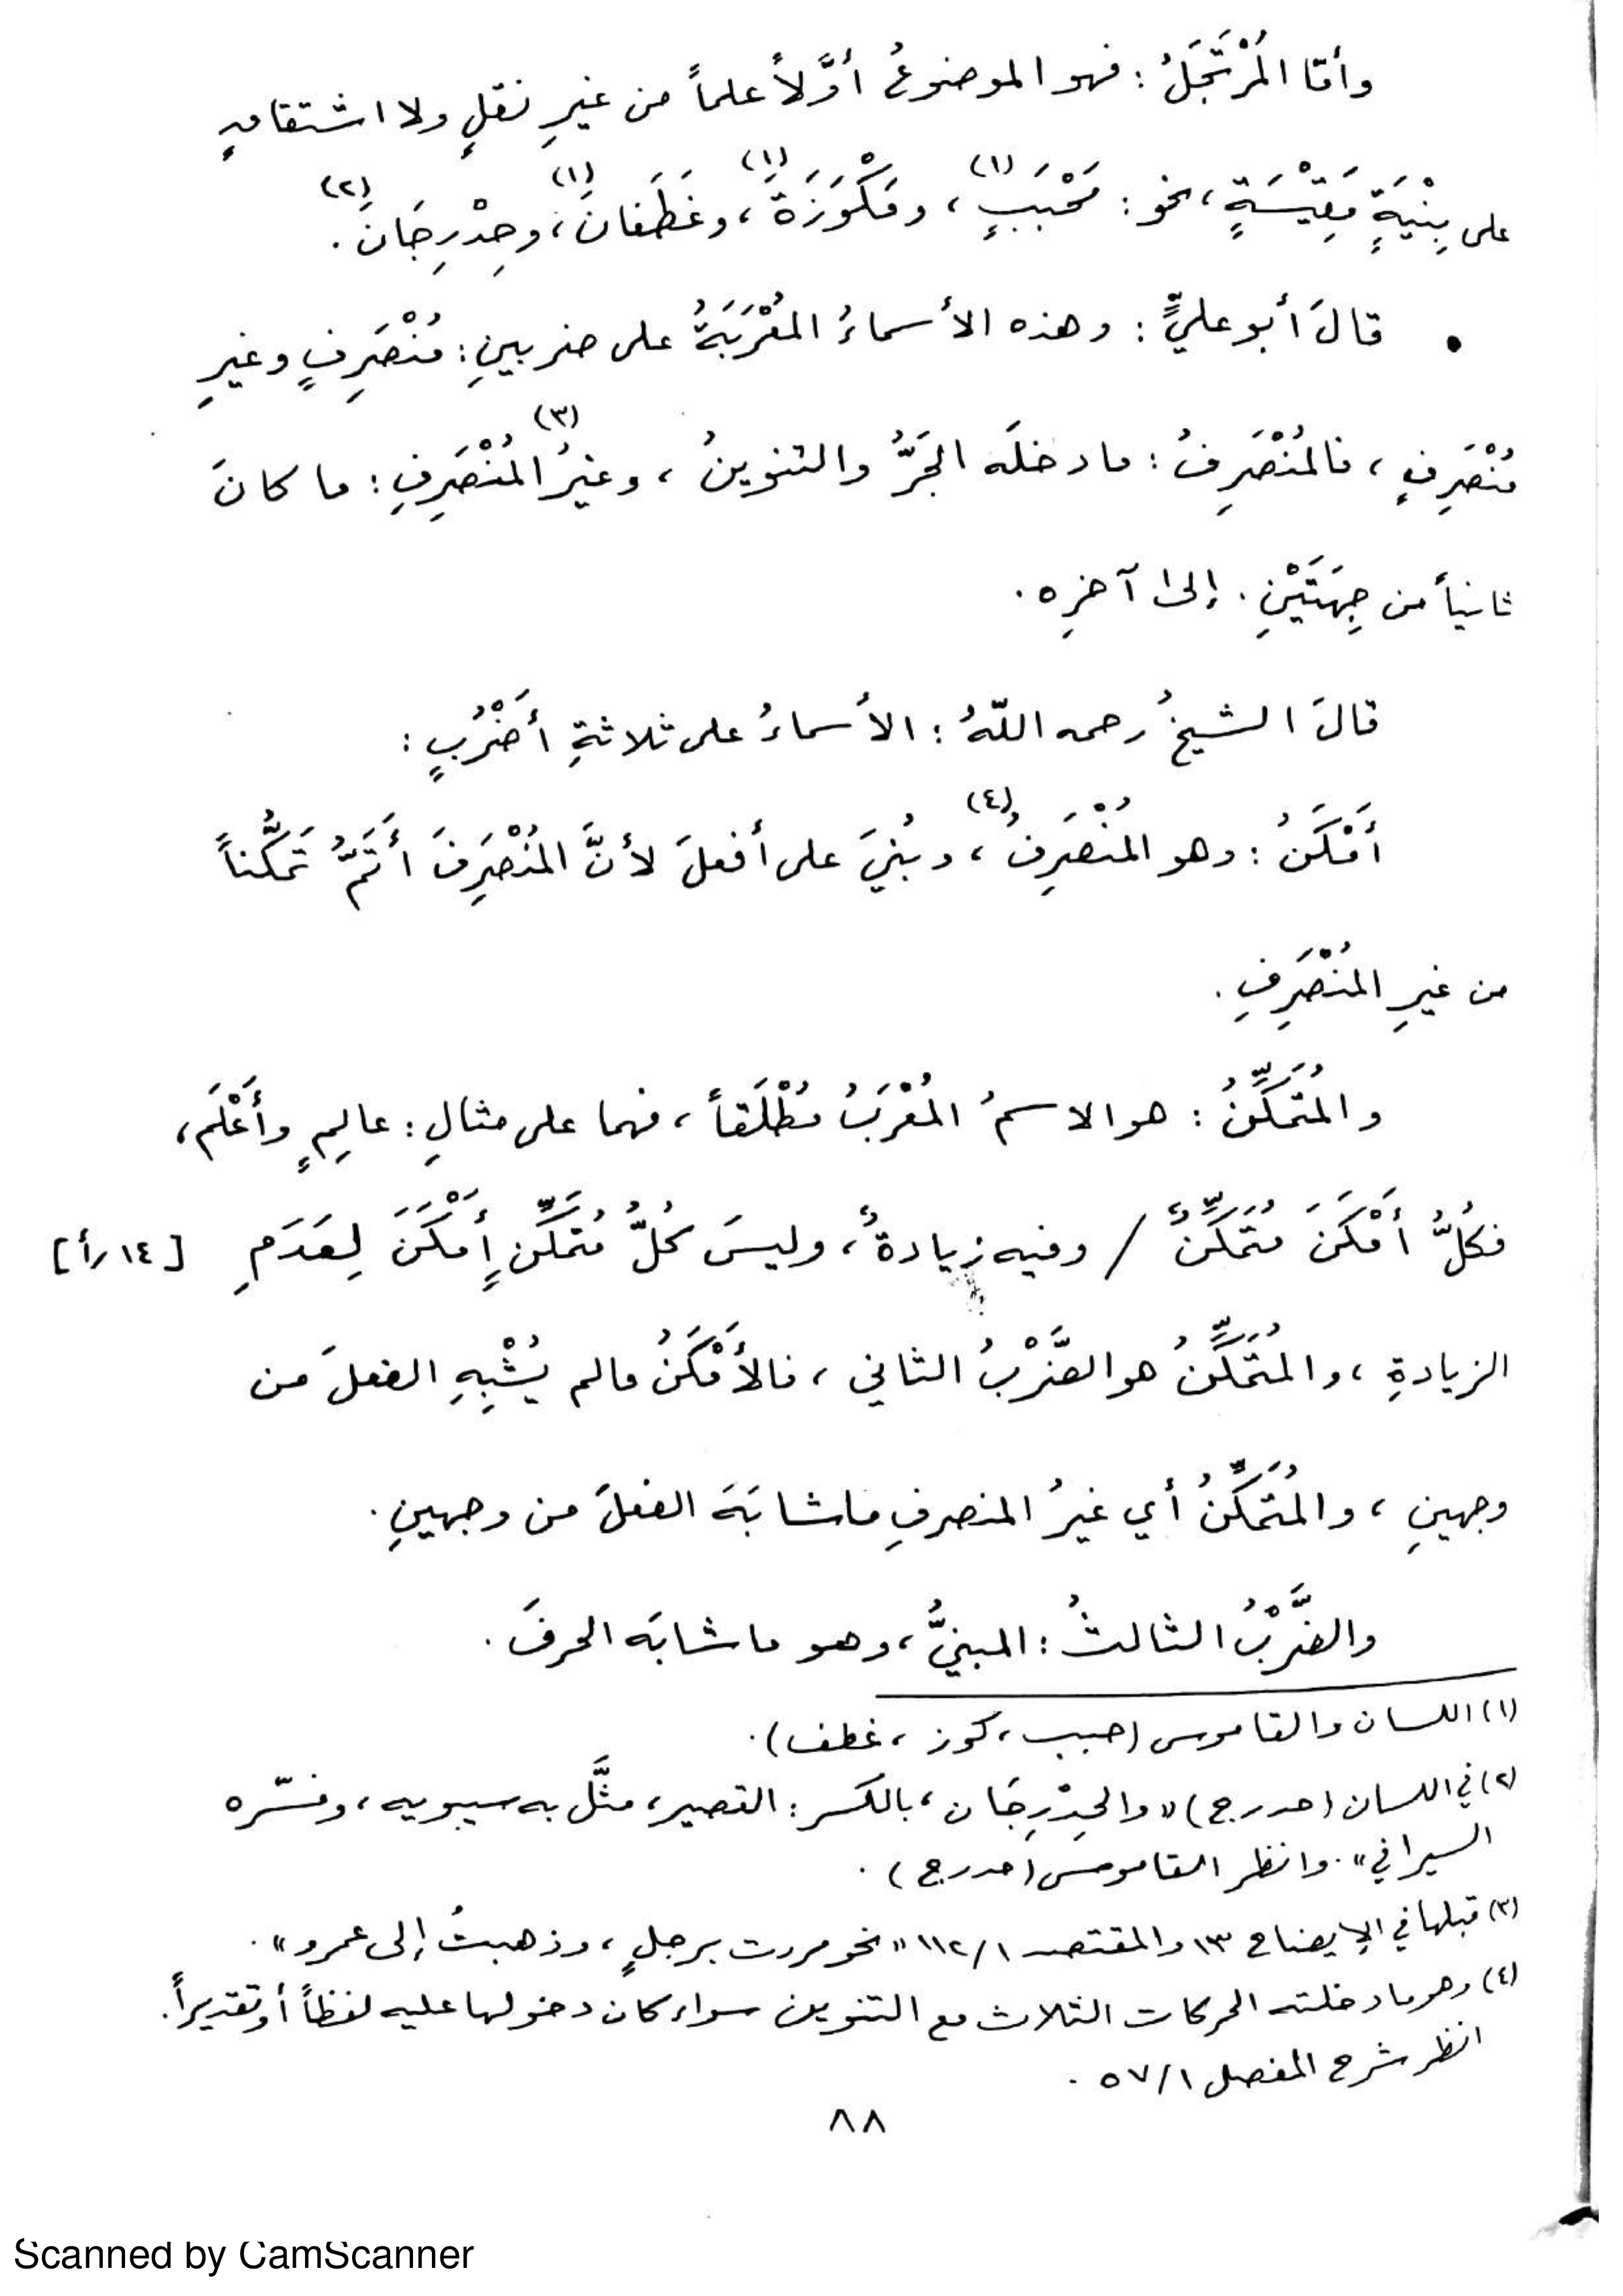 وأمّا المُرْتَجَلُ : فهو الموضوعُ أوَّلاً علماً من غيرِ نقلٍ ولا اشتقاقٍ
على بِنْيَةٍ مَقِيْسَةٍ ، نحو : مَحْبَبٍ (١) ، ومَكْوَزَةَ (١) ، وغَطَفانَ (١) ، وحِدْرِجَانَ (٢) .
• قالَ أبو عليٍّ : وهذه الأسماءُ المُعْرَبَةُ على ضربينِ : مُنْصَرِفٍ وغيرِ
مُنْصَرِفٍ ، فالمُنْصَرِفُ : ما دخلَه الجَرُّ والتنوينُ (٣) ، وغيرُ المُنْصَرِفِ : ما كانَ
ثانياً من جِهَتَيْنِ . إلى آخرِه .
قالَ الشيخُ رحمه اللّهُ : الأسماءُ على ثلاثةِ أضْرُبٍ :
أَمْكَنُ : وهو المُنْصَرِفُ (٤) ، وبُنيَ على أفعلَ لأنَّ المُنْصَرِفَ أَتَمُّ تَمَكُّناً
من غيرِ المُنْصَرِفِ .
والمُتَمَكِّنُ : هو الاسمُ المُعْرَبُ مُطْلَقاً ، فهما على مثالِ : عالِمٍ وأَعْلَم ،
فكُلُّ أَمْكَنَ مُتَمَكِّنٌ / وفيه زيادةٌ ، وليسَ كُلُّ مُتَمَكِّنٍ أَمْكَنَ لِعَدَمِ [١٤/أ]
الزيادةِ ، والمُتَمَكِّنُ هو الضَّرْبُ الثاني ، فالأَمْكَنُ ما لم يُشْبِهِ الفعلَ من
وجهينِ ، والمُتَمَكِّنُ أي غيرُ المنصرفِ ما شابَهَ الفعلَ من وجهينِ .
والضَّرْبُ الثالثُ : المبنيُّ ، وهو ما شابَه الحرفَ .
(١) اللسان والقاموس (حبب ، كوز ، غطف) .
(٢) في اللسان (حدرج) «والحِدْرِجَان ، بالكسر : القصير ، مثَّل به سيبويه ، وفسّره
السيرافي» . وانظر القاموس (حدرج) .
(٣) قبلها في الإيضاح ١٣ والمقتصد ١١٢/١ «نحو مررت برجلٍ ، وذهبتُ إلى عمرو» .
(٤) وهو ما دخلته الحركات الثلاث مع التنوين سواء كان دخولها عليه لفظاً أو تقديراً .
انظر شرح المفصل ٥٧/١ .
٨٨
Scanned by CamScanner